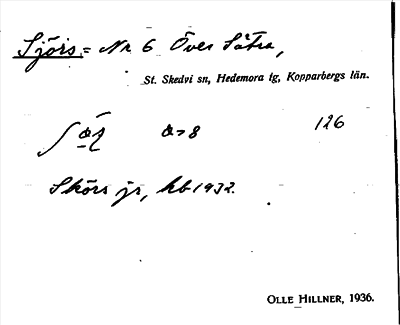 Sjörs = Nr 6 Över Sätra,
St. Skedvi sn, Hedemora tg, Kopparbergs län.
a > 8 126
Skörs jr, kb 1932.
OLLE HILLNER, 1936.